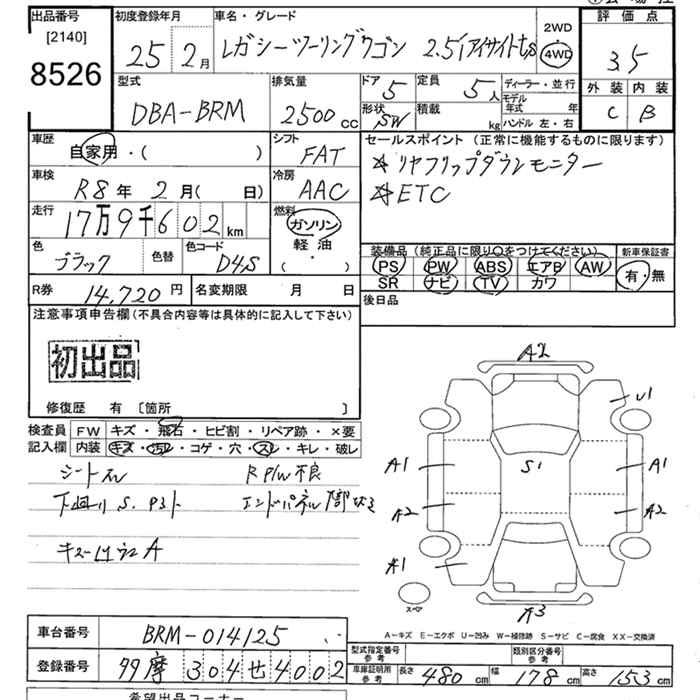 出品番号
[2140]
8526
初度登録年月
25 2月
車名・グレード
レガシーツーリングワゴン 2.5iアイサイトt/s
2WD
4WD
評価点
3.5
外装 内装
C B
型式
DBA-BRM
排気量
2500cc
ドア 5
形状 SW
定員 5人
積載 kg
ディーラー・並行
モデル年式 年
ハンドル 左・右
車歴
自家用・( )
シフト
FAT
車検
R8年 2月( 日)
冷房
AAC
走行
17万9千602 km
燃料
ガソリン
軽油
( ・ )
色
ブラック
色替
色コード
D4S
R券
14,720円
名変期限 月 日
セールスポイント (正常に機能するものに限ります)
☆リヤフリップダウンモニター
☆ETC
装備品(純正品に限り○をつけてください)
新車保証書
PS PW ABS エアB AW
SR ナビ TV カワ
有・無
後日品
注意事項申告欄(不具合内容等は具体的に記入して下さい)
初出品
修復歴 有 [箇所 ]
検査員記入欄
FW キズ・飛石・ヒビ割・リペア跡・×要
内装 キズ・汚れ・コゲ・穴・スレ・キレ・破レ
シートスレ R P/W不良
下廻り S.
A
A2
U1
A1 S1 A1
A2 A2
A1
A3
スペア
A－キズ E－エクボ U－凹み W－補修跡 S－サビ C－腐食 XX－交換済
車台番号
BRM-014125
登録番号
99摩304せ4002
型式指定番号
参考
類別区分番号
参考
車庫証明用
参考
長さ 480cm 幅 178cm 高さ 153cm
希望出品コーナー